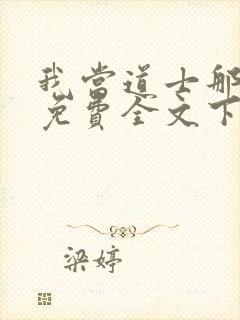 我当道士那
免费全文下
梁婷